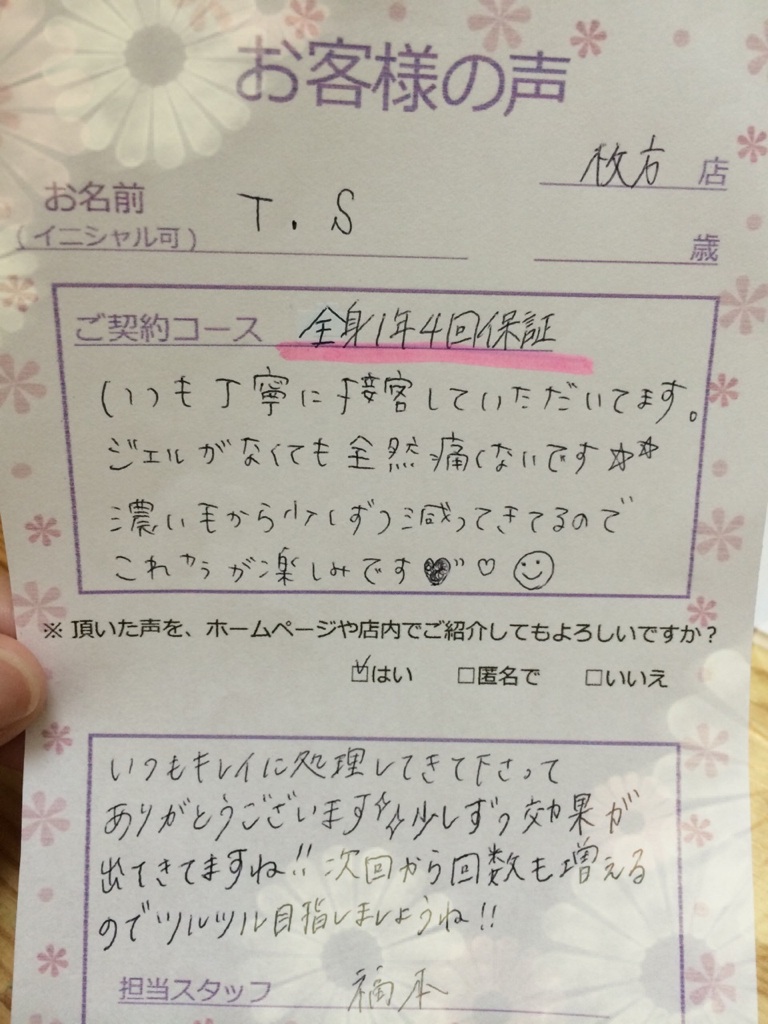 お客様の声
枚方 店
お名前
(イニシャル可) T.S
歳
ご契約コース 全身1年4回保証
いつも丁寧に接客していただいてます。
ジェルがなくても全然痛くないです☆★
濃い毛から少しずつ減ってきてるので
これからが楽しみです♥♡☺
※ 頂いた声を、ホームページや店内でご紹介してもよろしいですか？
☑はい □匿名で □いいえ
いつもキレイに処理してきて下さって
ありがとうございます✨少しずつ効果が
出てきてますね!! 次回から回数も増える
のでツルツル目指しましょうね!!
担当スタッフ 福本